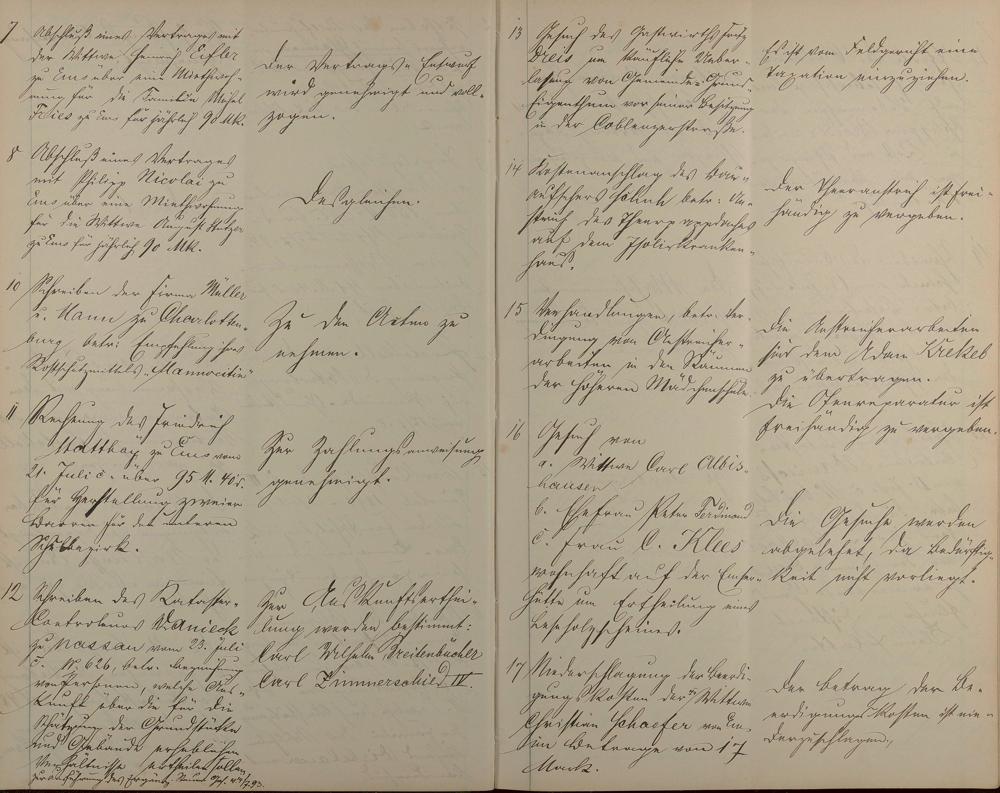 7 Abschluß eines Vertrages mit
der Wittwe Heinrich Eifler
zu Ems über eine Miethwoh-
nung für die Familie Michel
Fries zu Ems für jährlich 90 Mk.
Der Vertrags-Entwurf
wird genehmigt und voll-
zogen.
8 Abschluß eines Vertrages
mit Philipp Nicolai zu
Ems über eine Miethwohnung
für die Wittwe August
zu Ems für jährlich 90 Mk.
Desgleichen.
10 Schreiben der Firma Müller
u. Mann zu Charlotten-
burg, betr: Empfehlung ihres
Rostschutzmittels "Mannocitin"
Zu den Akten zu
nehmen.
11 Rechnung des Friedrich
zu Ems vom
21. Juli c. über 95 M. 40
für Herstellung zweier
Barren für den unteren
Schulbezirk.
Zur Zahlungsanweisung
genehmigt.
12 Schreiben des Kataster-
Controleurs Wanieck
zu Nassau vom 23. Juli
c. N. 626, betr. Bezeichnung
von Personen, welche Aus-
kunft über die für die
Schätzung der Grundstücke
und Gebäude erheblichen
Verhältnisse ertheilen sollen
zur Ausführung des Ergänz. Steuer Ges.
Zur Auskunftserthei-
lung werden bestimmt:
Carl Wilhelm Breitenbücher
Carl Zimmerschied IV.
13 Gesuch des Gastwirths
Dreis um käufliche Ueber-
lassung von Gemeinde-Grund-
eigenthum vor seiner Besitzung
in der Coblenzerstraße.
Es ist vom Feldgericht eine
Taxation einzuziehen.
14 Kostenanschlag des Bau-
aufsehers betr: An-
strich des Theerpappdaches
auf dem Isolirkranken-
haus.
Der Theeranstrich ist frei-
händig zu vergeben.
15 Verhandlungen, betr. Ver-
dingung von Anstreicher-
arbeiten in den Räumen
der höheren Mädchenschule.
Die Anstreicherarbeiten
sind dem Adam Krekel
zu übertragen.
Die Ofenreparatur ist
freihändig zu vergeben.
16 Gesuch von
a. Wittwe Carl Albis-
hausen
b. Ehefrau Peter Ferdinand
c. Frau C. Klees
wohnhaft auf der Emser-
hütte um Ertheilung eines
Leseholzscheines.
Die Gesuche werden
abgelehnt, da Bedürftig-
keit nicht vorliegt.
17 Niederschlagung der Beerdi-
gungskosten der Wittwe
Christian Schaefer von Ems
im Betrage von 17
Mark.
Der Betrag der Be-
erdigungskosten ist nie-
derzuschlagen.